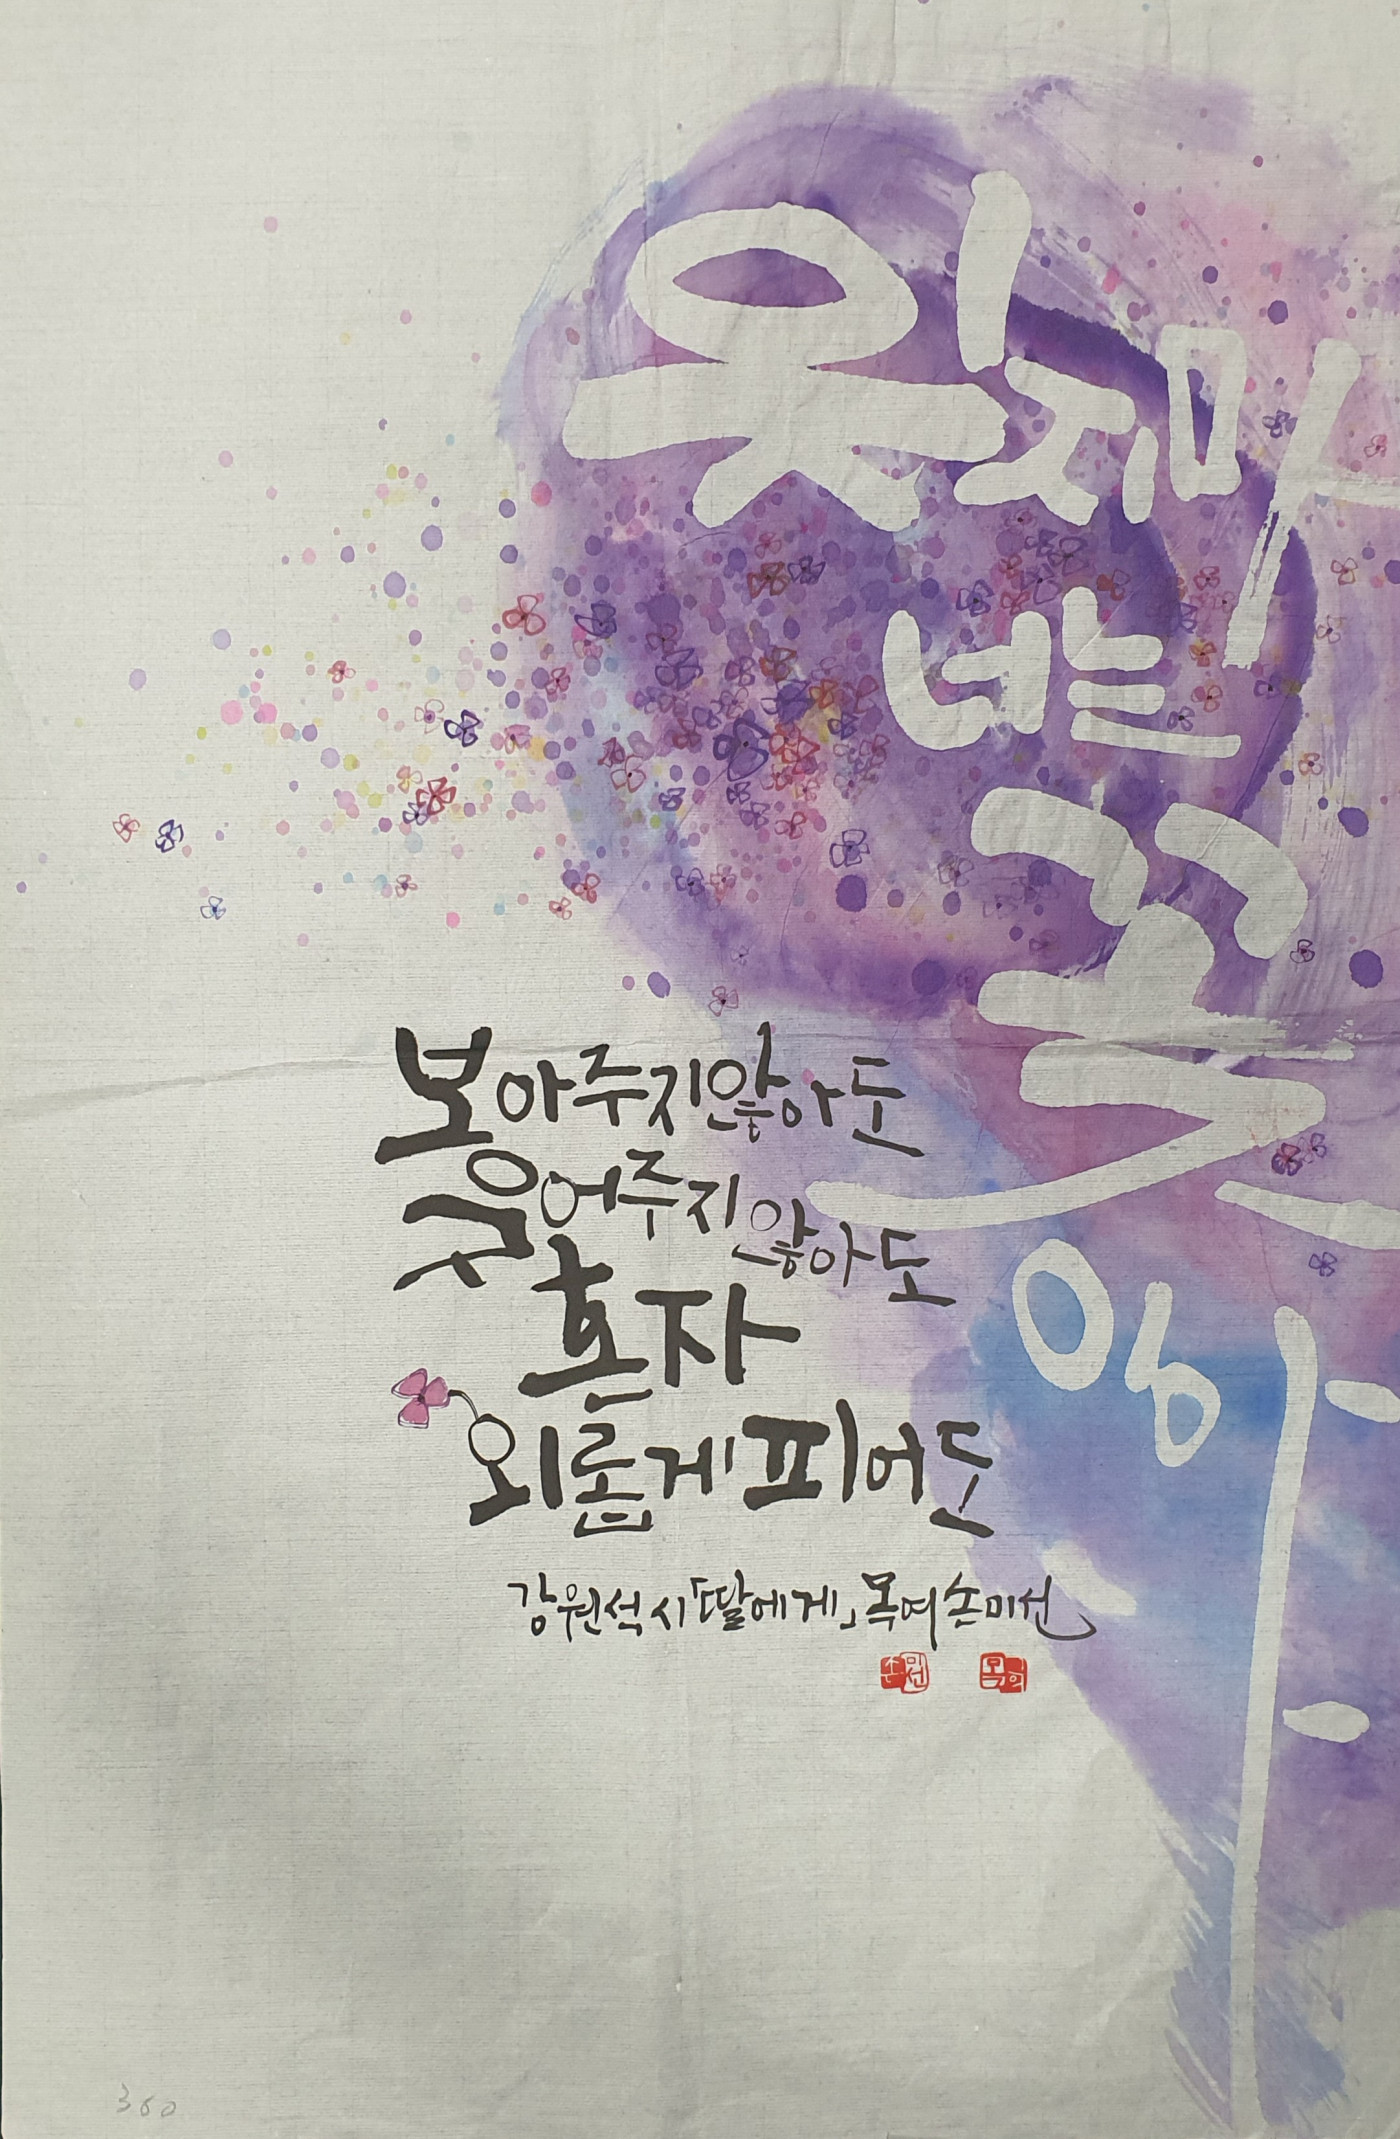 잊지마
너는
꽃
이야
보아주지않아도
웃어주지않아도
혼자
외롭게 피어도
강원석 시 「딸에게」 목여 손미선
손미선
360